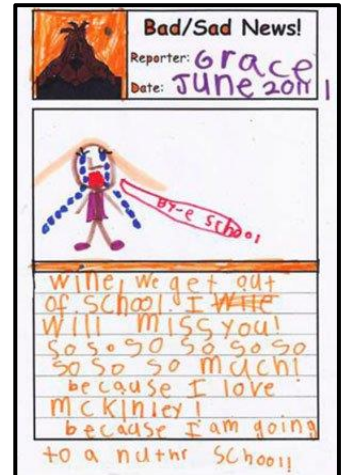 Bad/Sad News!
Reporter: Grace
Date: June 2011
BY-E School
wine, we get out
of school. I Wile
Will miss you!
So so so so so so
so so so much!
because I love
mckinley!
because I am going
to a nuthr School!